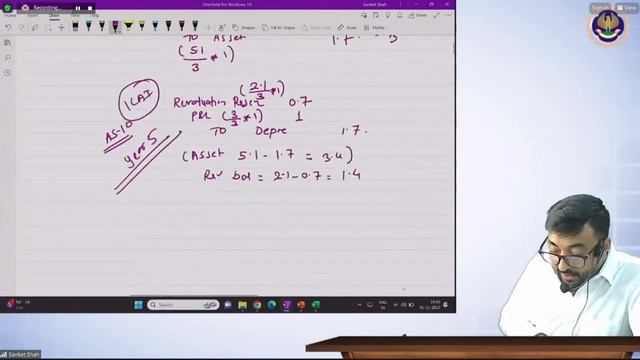 Recording...
OneNote for Windows 10
Sanket Shah
Sign in
View
File Home Insert Draw View Help
Ink to Shape
Ink to Math
Share
TO Asset 1.7 - 3
(5.1/3 * 1)
ICAI
(2.1/3 * 1)
Revaluation Reser 0.7
P&L (3/3 * 1) 1
TO Depre 1.7.
AS-10
Year 5
(Asset 5.1 - 1.7 = 3.4)
Rev bal = 2.1 - 0.7 = 1.4
Search
ENG
IN
19:09
01-12-2023
Sanket Shah